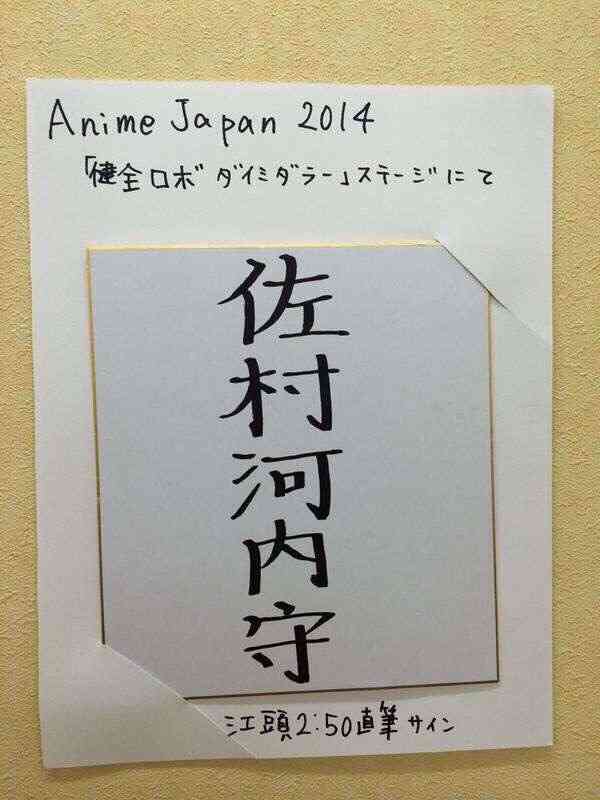 Anime Japan 2014
「健全ロボ ダイミダラー」ステージにて
佐村河内守
江頭2:50直筆サイン